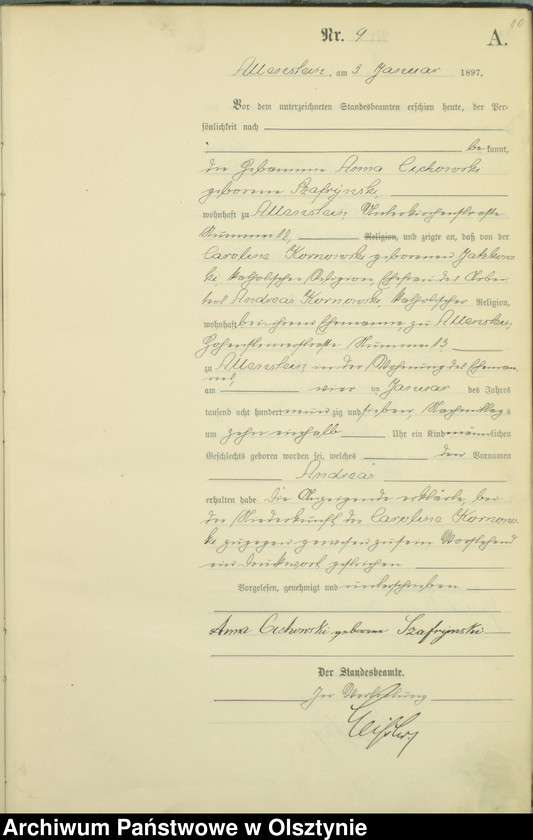 10
Nr. 9 A.
Allenstein, am 5 Januar 1897.
Vor dem unterzeichneten Standesbeamten erschien heute, der Per-
sönlichkeit nach
be kannt,
die Hebamme Anna Cichowski
geborene Szafrynski
wohnhaft zu Allenstein Unterkirchenstrasse
Nummer
Religion, und zeigte an, daß von der
Caroline Kornowski geborenen
katholischer Religion, Ehefrau des Arbei
ters Andreas Kornowski, katholischer Religion,
wohnhaft bei ihrem Ehemanne zu Allenstein,
Hohensteinerstrasse Nummer 13
zu Allenstein in der Wohnung des Eheman
nes,
am vier ten Januar des Jahres
tausend acht hundert neun zig und sieben Nachmittags
um zehn einhalb Uhr ein Kind männlichen
Geschlechts geboren worden sei, welches den Vornamen
Andreas
erhalten habe Die Anzeigende erklärte, bei
der Niederkunft der Caroline Kornows-
ki zugegen gewesen zu sein Vorstehend
ein Druckwort gestrichen
Vorgelesen, genehmigt und unterschrieben
Anna Cichowski geborene Szafrynski
Der Standesbeamte.
In Vertretung
Archiwum Państwowe w Olsztynie